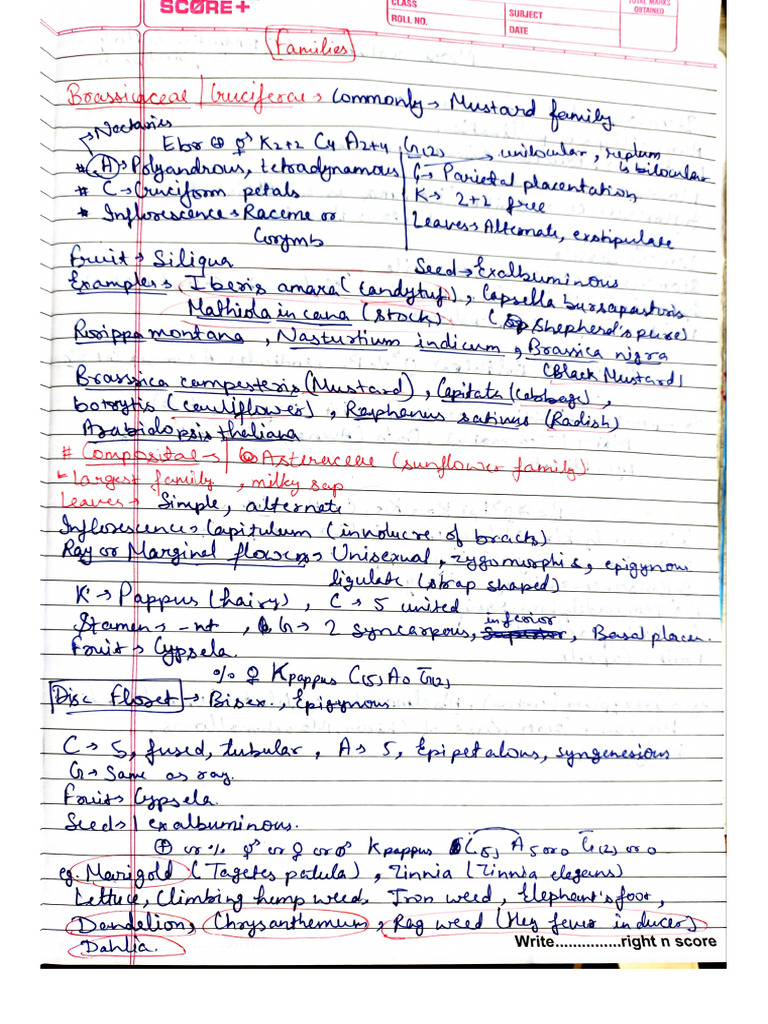 SCORE+
CLASS
ROLL NO.
SUBJECT
DATE
TOTAL MARKS
OBTAINED
Families
Brassicaceae / Cruciferae → Commonly → Mustard family
→ Nectaries
Ebr ⊕ ⚥ K2+2 C4 A2+4 G(2) → unilocular, replum
↳ bilocular
* (A) → Polyandrous, tetradynamous
G → Parietal placentation
* C → Cruciform petals
K → 2+2 free
* Inflorescence → Raceme or
Corymb
Leaves → Alternate, exstipulate
Fruit → Siliqua
Seed → Exalbuminous
Examples → Iberis amara (candytuf), Capsella bursapastoris
Mathiola incana (stock) (Shepherd's purse)
Rorippa montana, Nasturtium indicum, Brassica nigra
(Black Mustard)
Brassica campesteris (Mustard), Capitata (cabbage),
botrytis (cauliflower), Raphanus sativus (Radish)
Arabidopsis thaliana
# Compositae → / Asteraceae (sunflower family)
↳ largest family, milky sap
Leaves → Simple, alternate
Inflorescence → Capitulum (involucre of bracts)
Ray or Marginal flowers → Unisexual, zygomorphis, epigynous
ligulate (strap shaped)
K → Pappus (hairy), C → 5 united
Stamen → -nt, G → 2 syncarpous, inferior, Basal placen.
Fruit → Cypsela
% ♀ Kpappus C(5) A0 G(2)
Disc floret → Bisex., Epigynous
C → 5, fused, tubular, A → 5, Epipetalous, syngenesious
G → Same as ray.
Fruit → Cypsela.
Seed → 1 exalbuminous.
⊕ or % ⚥ or ♀ or ♂ Kpappus C(5) A5 or 0 G(2) or 0
eg. Marigold (Tagetes patula), Zinnia (Zinnia elegans)
Lettuce, Climbing hemp weed, Iron weed, Elephant's foot,
Dandelion, Chrysanthemum, Rag weed (Hey fever inducer)
Dahlia.
Write...............right n score